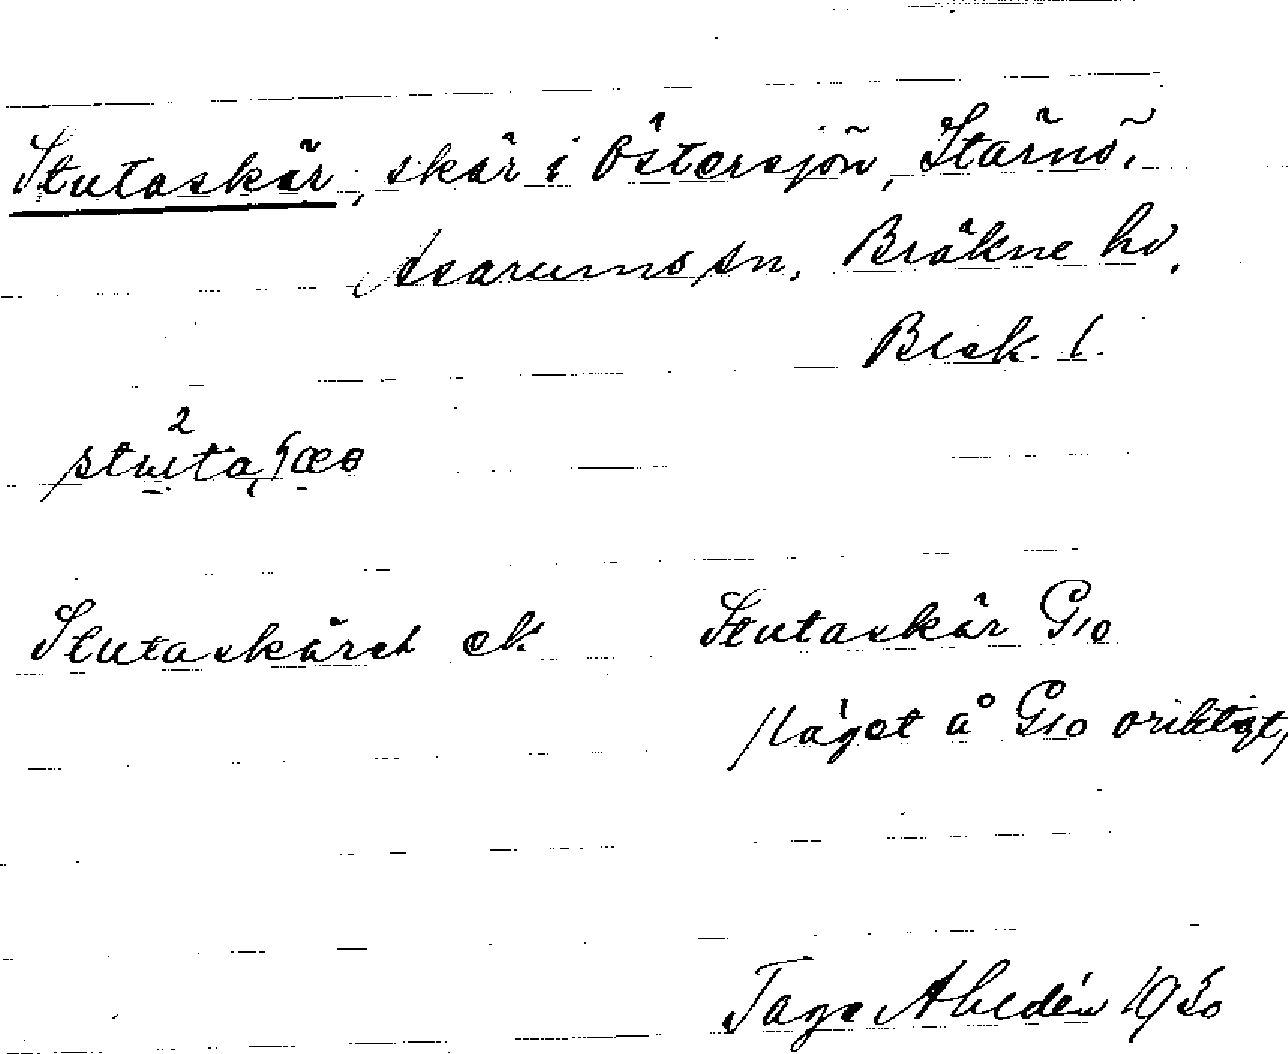 Stutaskär, skär i Östersjön, Stärnö.
Asarums sn. Bräkne hd.
Blek. l.
Stutaskäret ek. Stutaskär G10
/läget å G10 oriktigt/
Tage Ahldén 1930